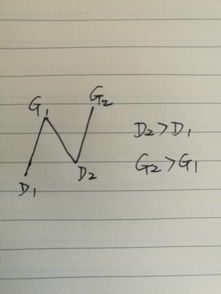 G₁
G₂
D₁
D₂
D₂>D₁
G₂>G₁